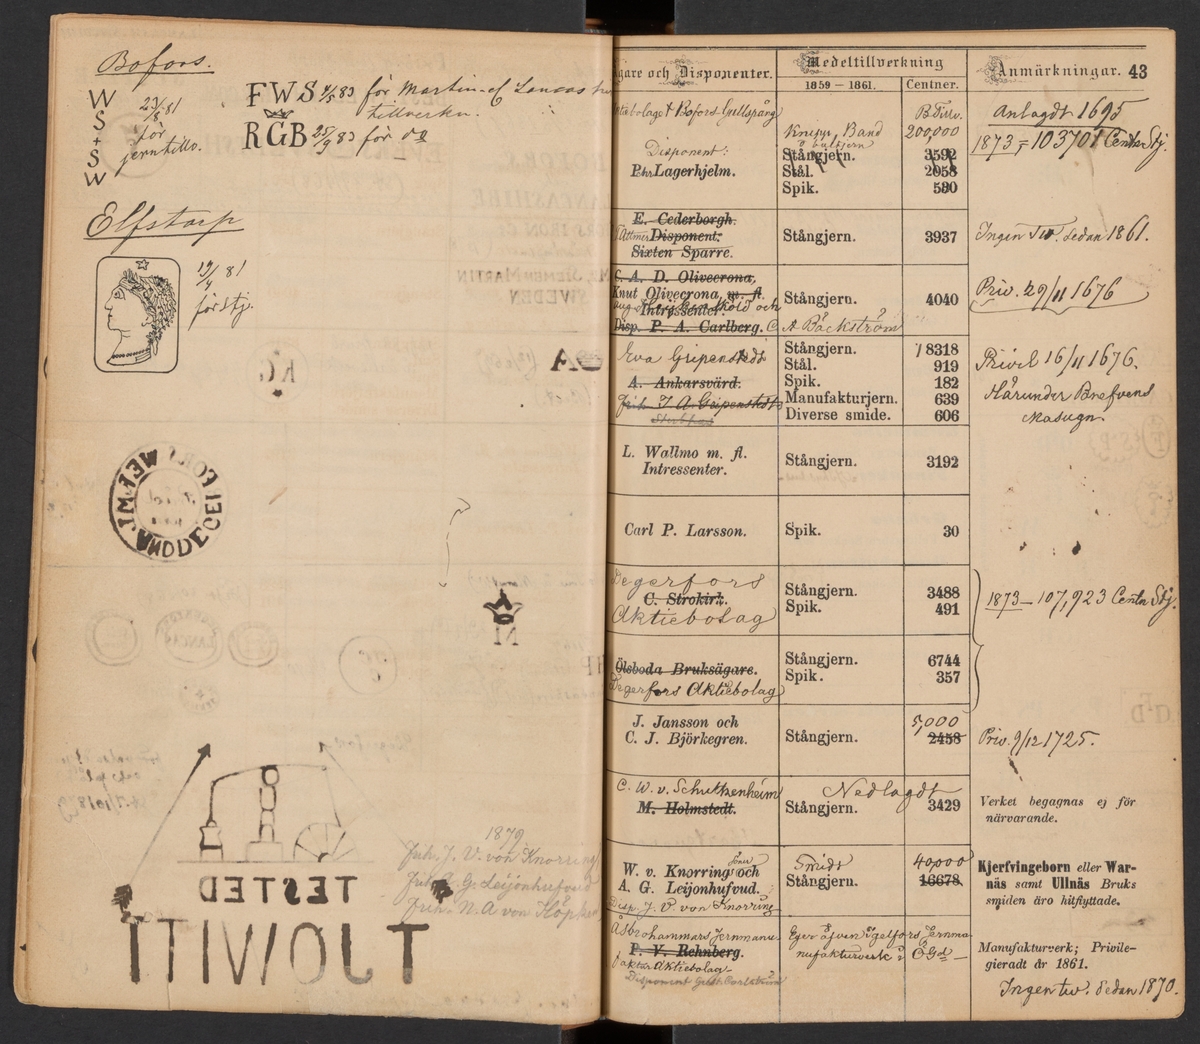 Bofors.
W
S
+
S
W
23/8 81
för
jerntillv.
FWS 4/5 83 för Martin- Lancas
tillverkn.
RGB 25/9 83 för do
Elfstorp
19/4 81
för stj.
AG
A
M
TESTED
1879
Frih. J. V. von Knorring
Frih. A. G. Leijonhufvud
Frih. N. A von Höpken
gare och Disponenter.
Medeltillverkning
1859 — 1861.
Centner.
Anmärkningar. 43
Bofors-Gullspång
Disponent:
P. Lagerhjelm.
Knipp, Band
Stångjern.
Stål.
Spik.
B Tillv.
200,000
3592
2058
580
Anlagdt 1695
1873 = 103701 Centn Stj.
E. Cederborgh.
Disponent:
Sixten Sparre.
Stångjern.
3937
Ingen Tv. sedan 1861.
C. A. D. Olivecrona,
Knut Olivecrona, m. fl.
Intressenter.
Disp. P. A. Carlberg. C A Bäckström
Stångjern.
4040
Priv. 29/11 1676
Eva Gripenstedt
A. Ankarsvärd.
Frih. J A Gripenstedts
Sterbhus
Stångjern.
Stål.
Spik.
Manufakturjern.
Diverse smide.
18318
919
182
639
606
Privil 16/11 1676.
Härunder Brefvens
Masugn.
L. Wallmo m. fl.
Intressenter.
Stångjern.
3192
Carl P. Larsson.
Spik.
30
Degerfors
C. Strokirk.
Aktiebolag
Stångjern.
Spik.
3488
491
1873 — 107,923 Centn Stj.
Ölsboda Bruksägare.
Degerfors Aktiebolag
Stångjern.
Spik.
6744
357
J. Jansson och
C. J. Björkegren.
Stångjern.
5,000
2458
Priv. 9/12 1725.
C. W. v. Schultzenheim
M. Holmstedt.
Nedlagdt
Stångjern.
3429
Verket begagnas ej för
närvarande.
W. v. Knorring och
A. G. Leijonhufvud.
Disp. J. V. von Knorring
Smidt
Stångjern.
40,000
16678
Kjerfringeborn eller War-
näs samt Ullnäs Bruks
smiden äro hitflyttade.
Åsbrohammars Jernmanu-
P. V. Rehnberg.
faktur Aktiebolag
Disponent Gust. Carlström
Eger äfven Igelfors Jernma-
nufakturverk i ÖGd —
Manufakturverk; Privile-
gieradt år 1861.
Ingen tv. sedan 1870.